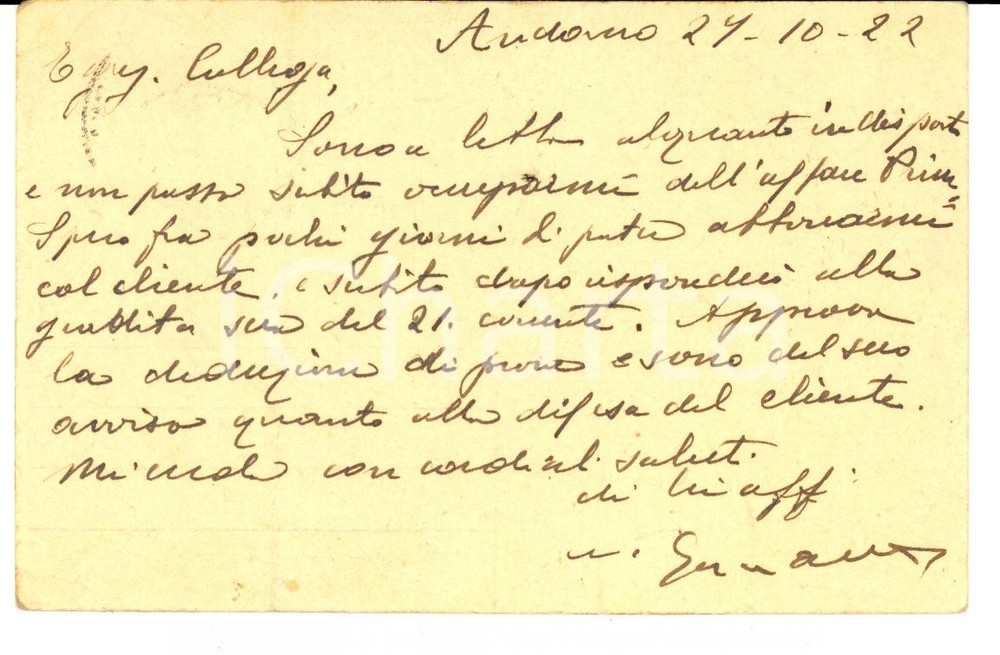 Andorno 24-10-22
Egreg. Collega,
Sono a letto alquanto indisposto
e non posso subito occuparmi dell'affare Prim=
Spero fra pochi giorni di poter abboccarmi
col cliente. e subito dopo risponderò alla
gradita sua del 21. corrente. Approvo
la deduzione di prova e sono del suo
avviso quanto alla difesa del cliente.
Mi creda con cordiali saluti.
di Lei aff